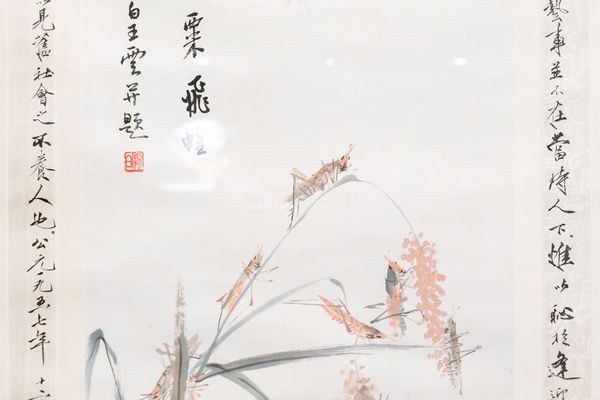 藝事並不在當時人下、惟以恥於逢迎
粟飛蝗
白王雲并題
見舊社會之不養人也、公元一九五七年十